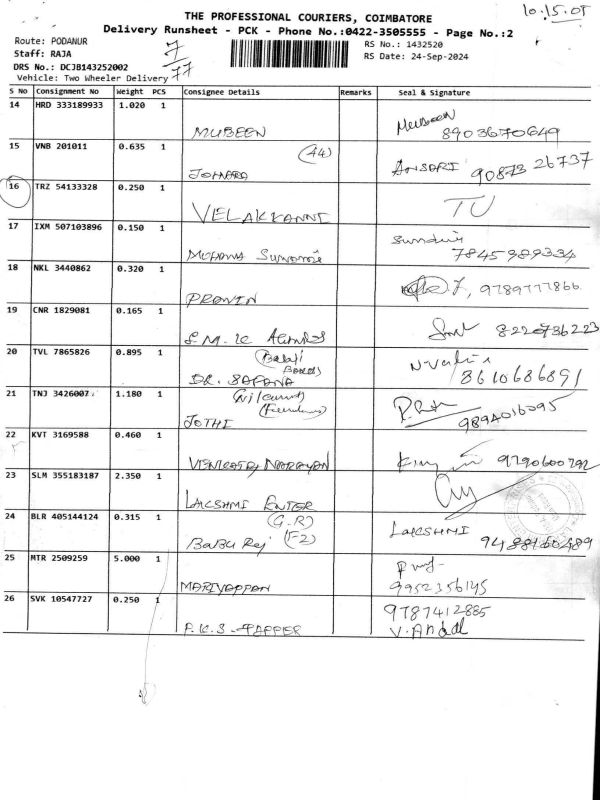 10.15.05
THE PROFESSIONAL COURIERS, COIMBATORE
Delivery Runsheet - PCK - Phone No.:0422-3505555 - Page No.:2
Route: PODANUR
Staff: RAJA
DRS No.: DCJB143252002
Vehicle: Two Wheeler Delivery
7
77
RS No.: 1432520
RS Date: 24-Sep-2024
S No Consignment No Weight PCS Consignee Details Remarks Seal & Signature
14 HRD 333189933 1.020 1 MUBEEN Mubeen 8903670649
15 VNB 201011 0.635 1 (44) ANSARI 90873 26737
16 TRZ 54133328 0.250 1 VELAKKANNI TU
17 IXM 507103896 0.150 1 7845989334
18 NKL 3440862 0.320 1 PROVIN 9789777866
19 CNR 1829081 0.165 1 8220736223
20 TVL 7865826 0.895 1 DR. SAFANA 8610686891
21 TNJ 3426007 1.180 1 JOTHI 9894016095
22 KVT 3169588 0.460 1 9790600792
23 SLM 355183187 2.350 1 LAKSHMI ENTER
24 BLR 405144124 0.315 1 (G.R) BABU Raj (F2) LAKSHMI 9488160489
25 MTR 2509259 5.000 1 MARIYAPPAN 9952356145
26 SVK 10547727 0.250 1 9787412885
V. Andal